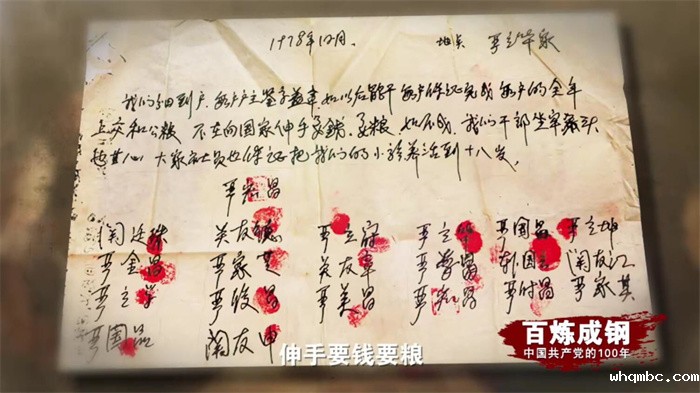 1978年12月. 地点 严立华家
我们分田到户,每户户主签字盖章,如以后能干,每户保证完成每户的全年
上交和公粮.不在向国家伸手要钱要粮.如不成,我们干部坐牢杀头
也甘心,大家社员也保证把我们的小孩养活到十八岁.
严宏昌
关友德 严立符 严立华 严国昌 严立坤
严金昌 严家芝 关友章 严学昌 韩国云 关友江
严立学 严俊昌 严美昌 严付昌 严家其
严国品 关友申
伸手要钱要粮
百炼成钢
中国共产党的100年
whqmbc.com